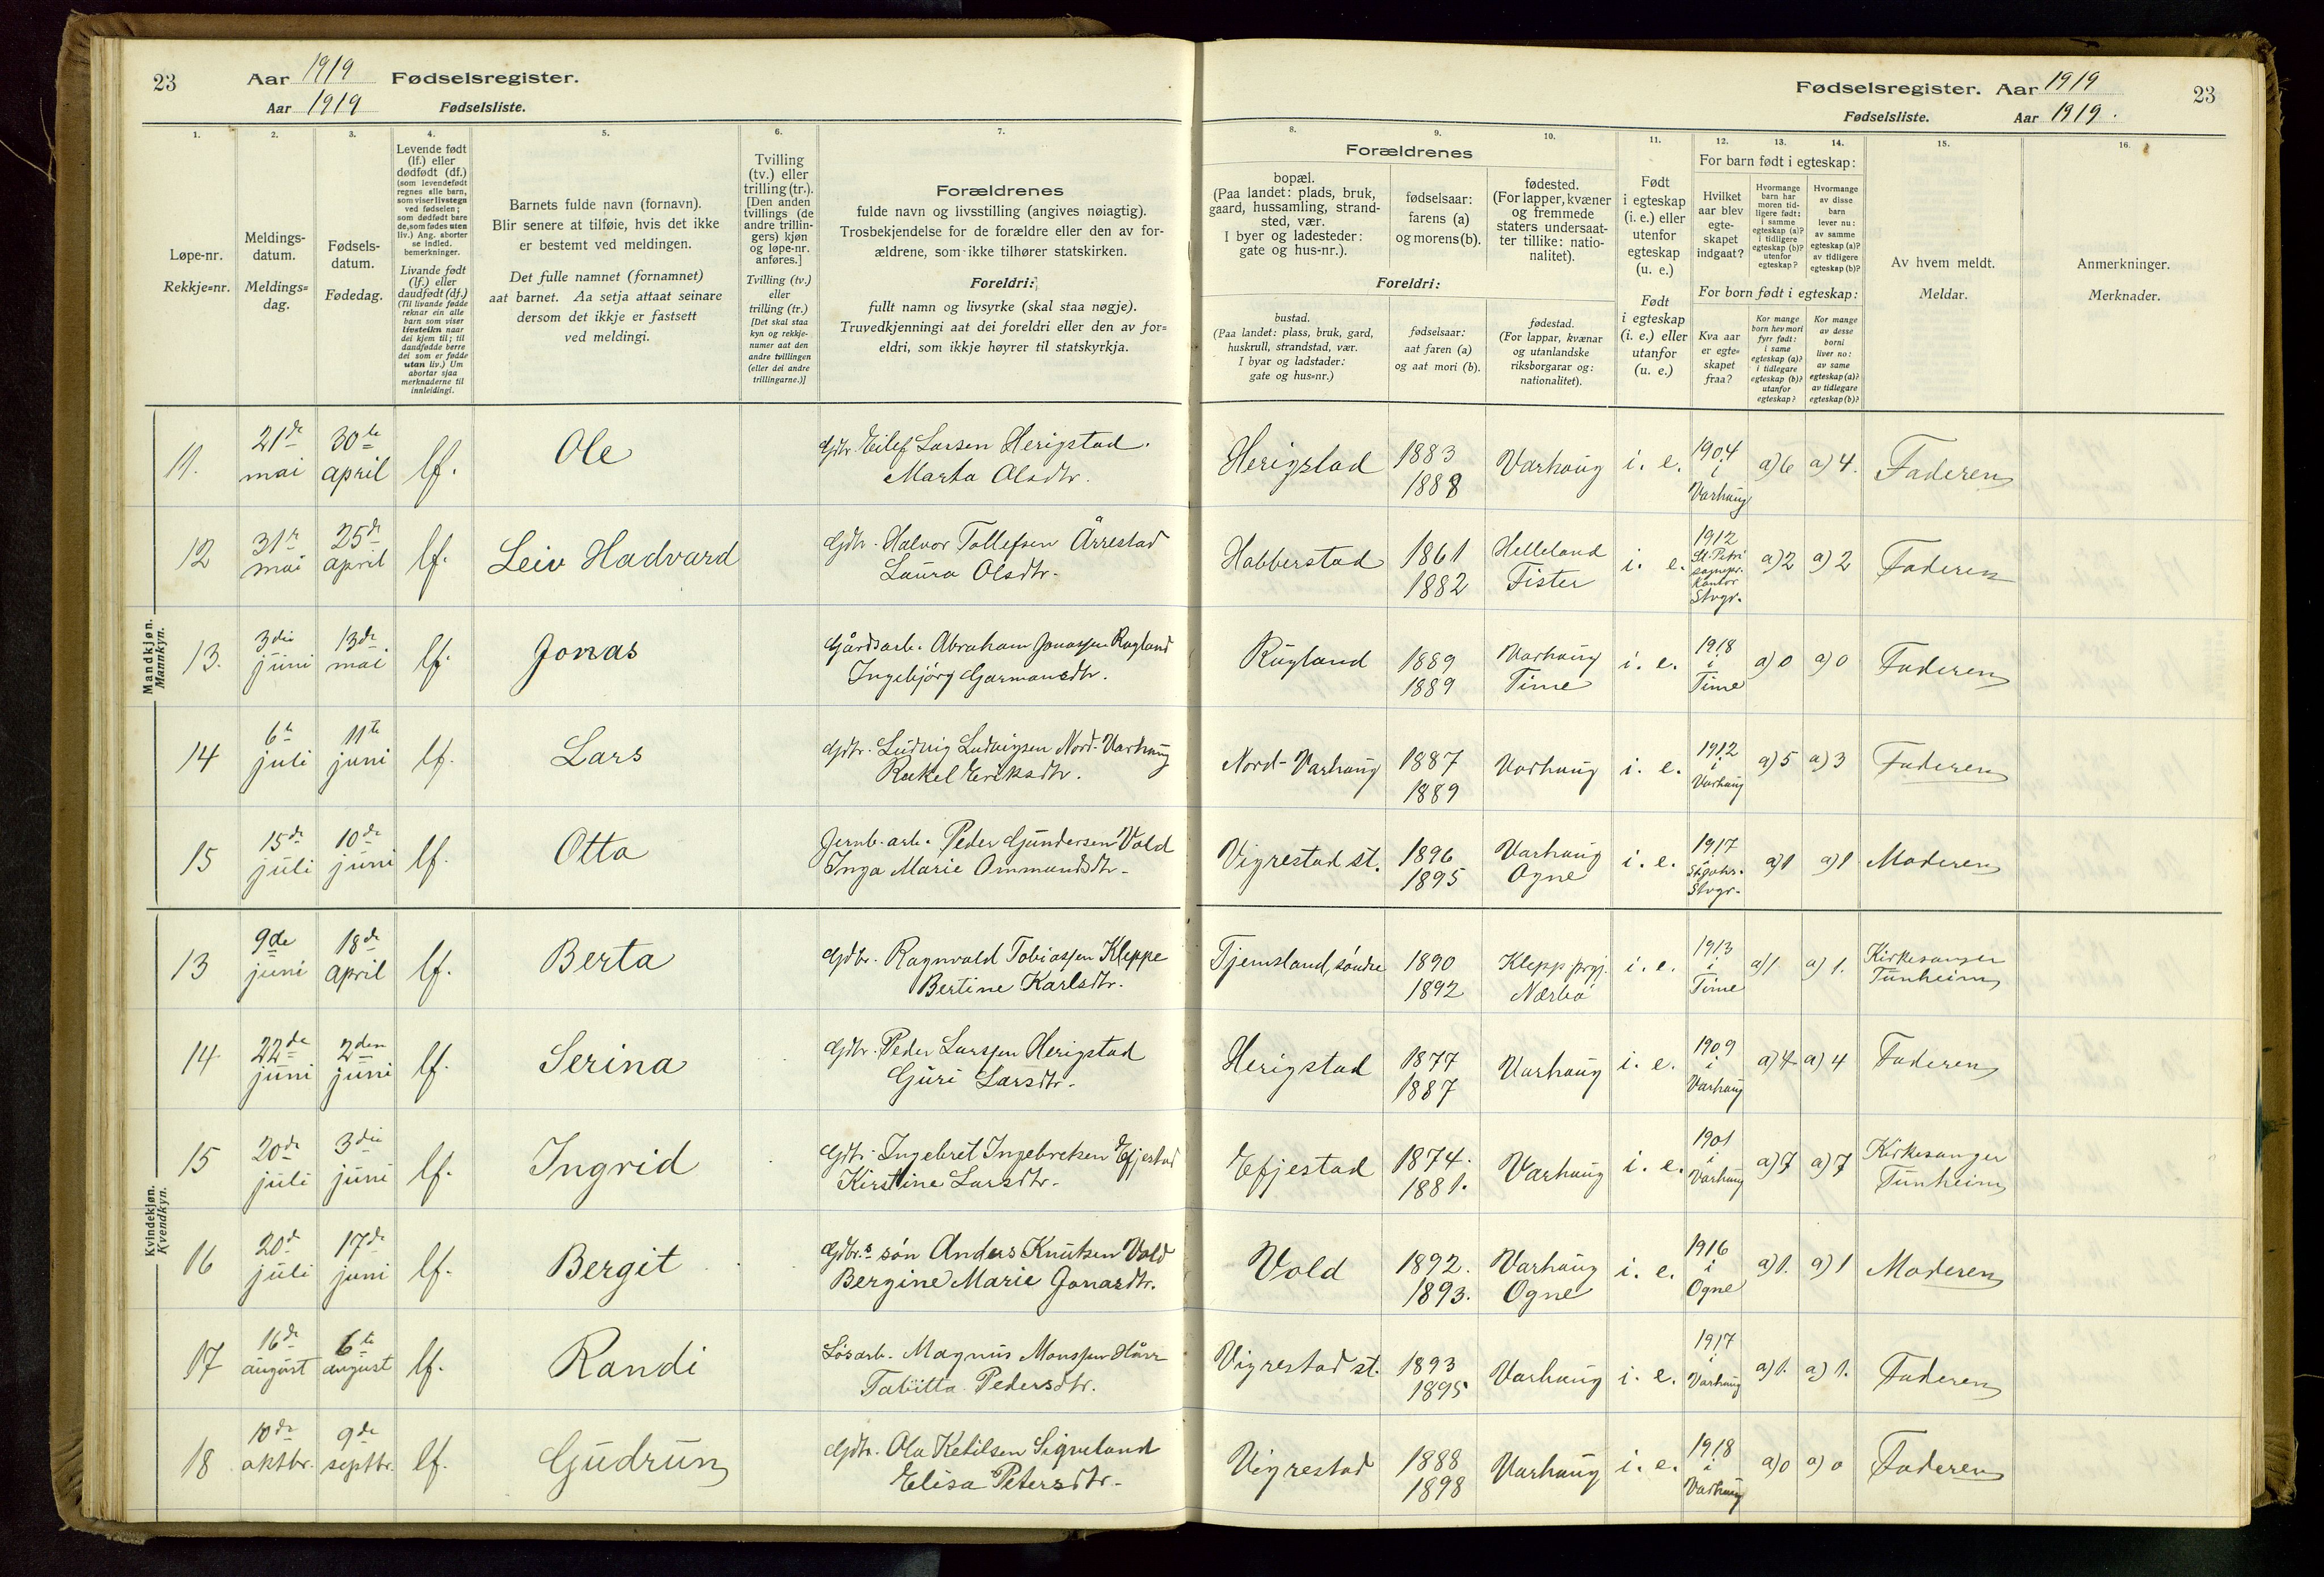 23
Aar 1919 Fødselsregister.
Aar 1919 Fødselsliste.
Fødselsregister. Aar 1919
Fødselsliste. Aar 1919.
23
1. 2. 3. 4. 5. 6. 7. 8. 9. 10. 11. 12. 13. 14. 15. 16.
Løpe-nr.
Rekkje=nr.
Meldings-
datum.
Meldings=
dag.
Fødsels-
datum.
Fødedag.
Levende født
(lf.) eller
dødfødt (df.)
(som levendefødt
regnes alle barn,
som viser livstegn
ved fødselen;
som dødfødt bare
de, som fødes uten
liv.) Ang. aborter
se indled.
bemerkninger.
Livande født
(lf.) eller
daudfødt (df.)
(Til livande fødde
reknar ein alle
barn som viser
livsteikn naar
dei kjem til; til
daudfødde berre
dei som er fødde
utan liv.) Um
abortar sjaa
merknaderne til
innleidingi.
Barnets fulde navn (fornavn).
Blir senere at tilføie, hvis det ikke
er bestemt ved meldingen.
Det fulle namnet (fornamnet)
aat barnet. Aa setja attaat seinare
dersom det ikkje er fastsett
ved meldingi.
Tvilling
(tv.) eller
trilling (tr.).
[Den anden
tvillings (de
andre trillin-
gers) kjøn
og løpe-nr.
anføres.]
Tvilling (tv.)
eller
trilling (tr.)
[Det skal staa
kyn og rekkje-
numer aat den
andre tvillingen
(eller dei andre
trillingarne.)]
Forældrenes
fulde navn og livsstilling (angives nøiagtig).
Trosbekjendelse for de forældre eller den av for-
ældrene, som ikke tilhører statskirken.
Foreldri:
fullt namn og livsyrke (skal staa nøgje).
Truvedkjenningi aat dei foreldri eller den av for=
eldri, som ikkje høyrer til statskyrkja.
Forældrenes
bopæl.
(Paa landet: plads, bruk,
gaard, hussamling, strand-
sted, vær.
I byer og ladesteder:
gate og hus-nr.).
fødselsaar:
farens (a)
og morens (b).
fødested.
(For lapper, kvæner
og fremmede
staters undersaat-
ter tillike: natio-
nalitet).
Foreldri:
bustad.
(Paa landet: plass, bruk, gard,
huskrull, strandstad, vær.
I byar og ladstader:
gate og hus=nr.)
fødselsaar:
aat faren (a)
og aat mori (b).
fødestad.
(For lappar, kvænar
og utanlandske
riksborgarar og:
nationalitet).
Født
i egteskap
(i. e.) eller
utenfor
egteskap
(u. e.)
Født
i egteskap
(i. e.) eller
utanfor
(u. e.)
For barn født i egteskap:
Hvilket
aar blev
egte-
skapet
indgaat?
Hvormange
barn har
moren tid-
ligere født:
i samme
egteskap (a)?
i tidligere
egteskap (b)?
utenfor
egteskap?
Hvormange
av disse
barn
lever nu:
av samme
egteskap (a)?
av tidligere
egteskap (b)?
For born født i egteskap:
Kva aar
er egte=
skapet
fraa?
Kor mange
born hev mori
fyrr født:
i same
egteskap (a)?
i tidlegare
egteskap (b)?
utanfor
egteskap?
Kor mange
av desse
borni
liver no:
av same
egteskap (a)?
av tidlegare
egteskap (b)?
Av hvem meldt.
Meldar.
Anmerkninger.
Merknader.
Mandkjøn.
Mannkyn.
11. 21de mai 30te april lf. Ole
Gdbr. Eilef Larsen Herigstad.
Marta Olsdtr.
Herigstad 1883 1888 Varhaug i. e. 1904 i Varhaug a) 6 a) 4. Faderen
12 31te mai 25de april lf. Leiv Hadvard
Gdbr. Halvor Tollefsen Årrestad
Laura Olsdtr.
Habberstad 1861 1882 Helleland Fister i. e. 1912 St. Petri sognepr. kontor Stvgr. a) 2 a) 2 Faderen
13. 3die juni 13de mai lf. Jonas
Gårdsarb. Abraham Jonassen Rugland
Ingebjörg Garmansdtr.
Rugland 1889 1889 Varhaug Time i. e. 1918 i Time a) 0 a) 0 Faderen
14 6te juli 11te juni lf. Lars
Gdbr. Ludvig Ludvigsen Nord-Varhaug
Rakel Eriksdtr.
Nord-Varhaug 1887 1889 Varhaug i. e. 1912 i Varhaug a) 5 a) 3 Faderen
15 15de juli 10de juni lf. Otto
Jernb. arb. Peder Gundersen Vold
Inga Marie Ommundsdtr.
Vigrestad st. 1896 1895 Varhaug Ogne i. e. 1917 St. Johs. Stvgr. a) 1 a) 1 Moderen
Kvindekjøn.
Kvendkyn.
13 9de juni 18de april lf. Berta
Gdbr. Ragnvald Tobiassen Kleppe
Bertine Karlsdtr.
Tjemsland, söndre 1890 1892 Klepp prgj. Nærbö i. e. 1913 i Time a) 1. a) 1. Kirkesanger Tunheim
14 22de juni 2den juni lf. Serina
Gdbr. Peder Larssen Herigstad
Guri Larsdtr.
Herigstad 1877 1887 Varhaug i. e. 1909 i Varhaug a) 4 a) 4 Faderen
15 20de juli 3die juni lf. Ingrid
Gdbr. Ingebret Ingebretsen Efjestad
Kirstine Larsdtr.
Efjestad 1874. 1881. Varhaug i. e. 1901 i Varhaug a) 7 a) 7 Kirkesanger Tunheim
16 20de juli 17de juni lf. Bergit
Gdbr.s sön Anders Knutsen Vold
Bergine Marie Jonasdtr.
Vold 1892. 1893. Varhaug Ogne i. e. 1916 i Ogne a) 1. a) 1 Moderen
17 16de august 6te august lf. Randi
Lösarb. Magnus Monssen Hårr
Tabitta Pedersdtr.
Vigrestad st. 1893 1895 Varhaug i. e. 1917 i Varhaug a) 1. a) 1. Faderen
18 10de oktbr. 9de septbr. lf. Gudrun
Gdbr. Ola Ketilsen Sigveland
Elisa Petersdtr.
Vigrestad 1888 1898 Varhaug i. e. 1918 i Varhaug a) 0 a) 0 Faderen